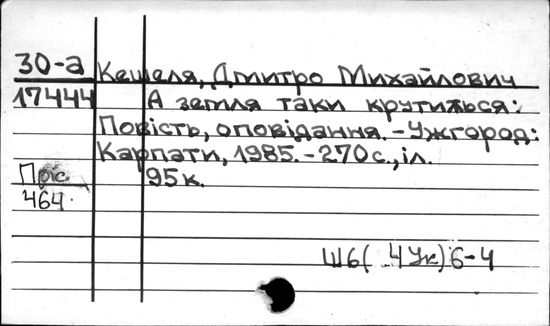 30-а Кешеля, Дмитро Михайлович
17444 А земля таки крутиться:
Повість, оповідання. – Ужгород:
Карпати, 1985. – 270 с., іл.
95 к.
464.
Ш6( 4Ук) 6-4